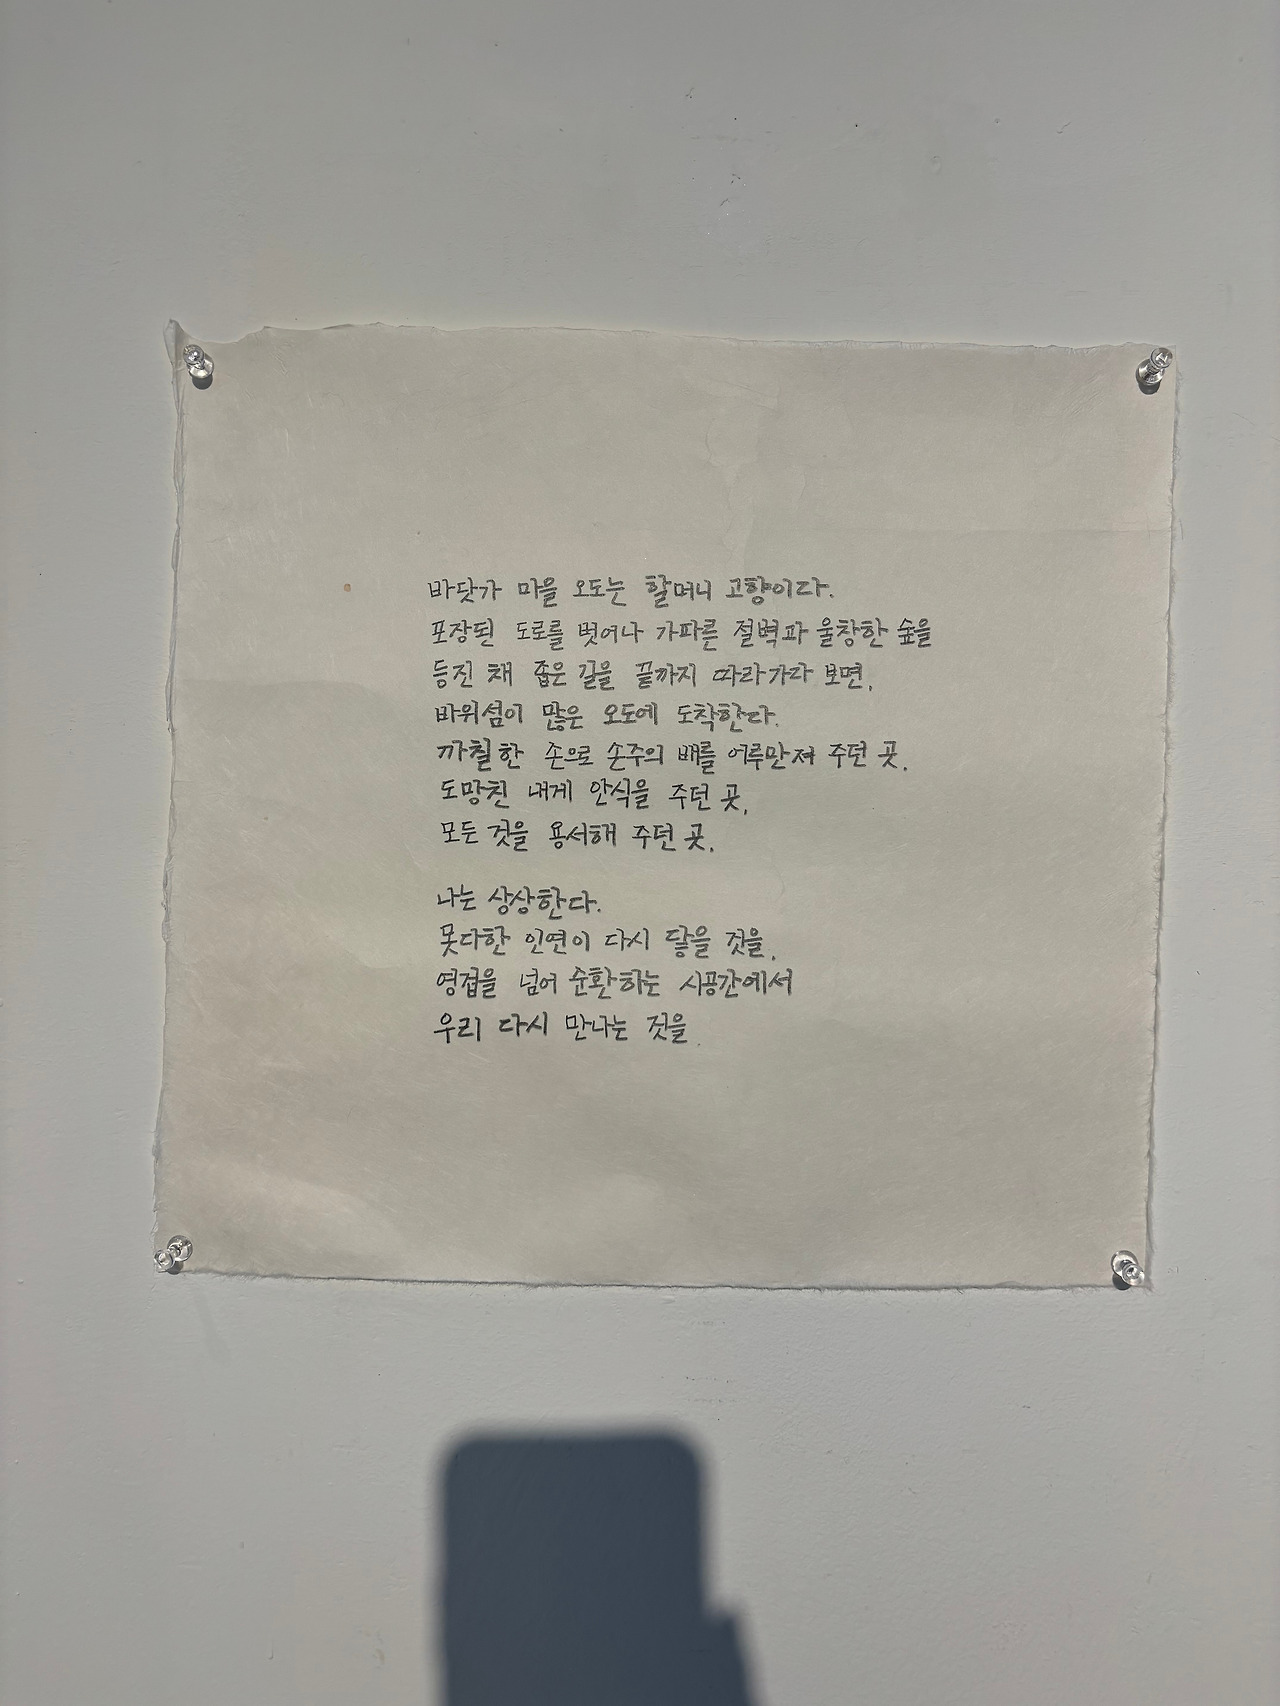 바닷가 마을 오도는 할머니 고향이다.
포장된 도로를 벗어나 가파른 절벽과 울창한 숲을
등진 채 좁은 길을 끝까지 따라가다 보면,
바위섬이 많은 오도에 도착한다.
까칠한 손으로 손주의 배를 어루만져 주던 곳.
도망친 내게 안식을 주던 곳,
모든 것을 용서해 주던 곳.
나는 상상한다.
못다한 인연이 다시 닿을 것을,
영겁을 넘어 순환하는 시공간에서
우리 다시 만나는 것을.